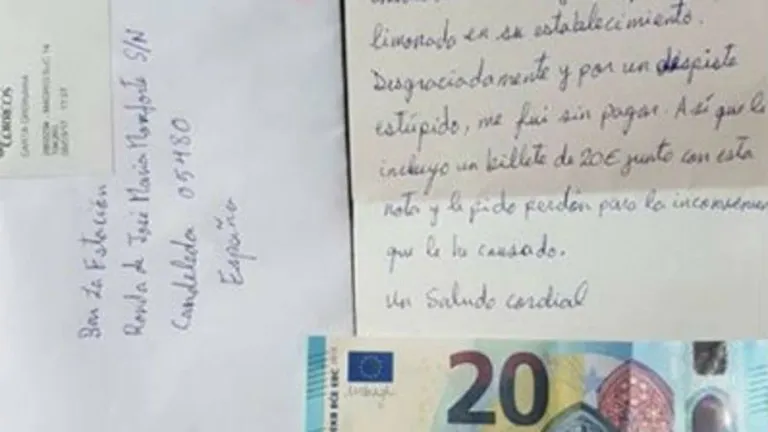 CORREOS
CARTA ORDINARIA
Bar La Estación
Ronda de José María Monforte S/N
Candeleda 05480
España
limonada en su establecimiento.
Desgraciadamente y por un despiste
estúpido, me fui sin pagar. Así que le
incluyo un billete de 20€ junto con esta
nota y le pido perdón para la inconvenien
que le he causado.
Un Saludo cordial
20